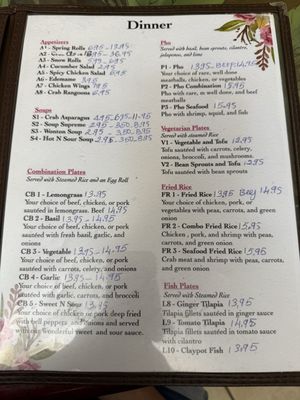 Dinner
Appetizers
A1 - Spring Rolls 6.95 - 13.95
A2 -
A3 - Snow Rolls
A4 - Cucumber Salad 2.95
A5 - Spicy Chicken Salad 6.95
A6 - Edemame 3.95
A7 - Chicken Wings
A8 - Crab Rangoons 6.95
Soups
S1 - Crab Asparagus
S2 - Soup Supreme
S3 - Wonton Soup
S4 - Hot N Sour Soup
Combination Plates
Served with Steamed Rice and an Egg Roll
CB 1 - Lemongrass 13.95
Your choice of beef, chicken, or pork
sauteed in lemongrass. Beef 14.95
CB 2 - Basil 13.95 - 14.95
Your choice of beef, chicken, or pork
sauteed with fresh basil, garlic, and
onions
CB 3 - Vegetable 13.95 - 14.95
Your choice of beef, chicken, or pork
sauteed with carrots, celery, and onions
CB 4 - Garlic 13.95 - 14.95
Your choice of beef, chicken, or pork
sauteed with garlic, carrots, and broccoli
CB 5 - Sweet N Sour 13.95
Your choice of chicken or pork deep fried
with bell peppers and onions and served
with our wonderful sweet and sour sauce.
Pho
Served with basil, bean sprouts, cilantro,
jalapenos, and lime
P1 - Pho 13.95 BEEF 14.95
Your choice of rare, well done
meatballs, chicken, or vegetable
P2 - Pho Combination 15.95
Pho with rare, well done, and beef
meatballs
P3 - Pho Seafood 15.95
Pho with shrimp, squid, and fish
Vegetarian Plates
Served with Steamed Rice
V1 - Vegetable and Tofu 12.95
Tofu sauteed with carrots, celery,
onions, broccoli, and mushrooms.
V2 - Bean Sprouts and Tofu 12.95
Tofu sauteed with bean sprouts
Fried Rice
FR 1 - Fried Rice 13.95 Beef 14.95
Your choice of chicken, pork, or
vegetables with peas, carrots, and green
onion
FR 2 - Combo Fried Rice 15.95
Chicken, pork, and shrimp with peas,
carrots, and green onion
FR 3 - Seafood Fried Rice 15.95
Crab meat and shrimp with peas, carrots,
and green onion
Fish Plates
Served with Steamed Rice
L8 - Ginger Tilapia 13.95
Tilapia filets sauteed in ginger sauce
L9 - Tomato Tilapia 14.95
Tilapia filets sauteed in tomato sauce
with cilantro
L10 - Claypot Fish 13.95